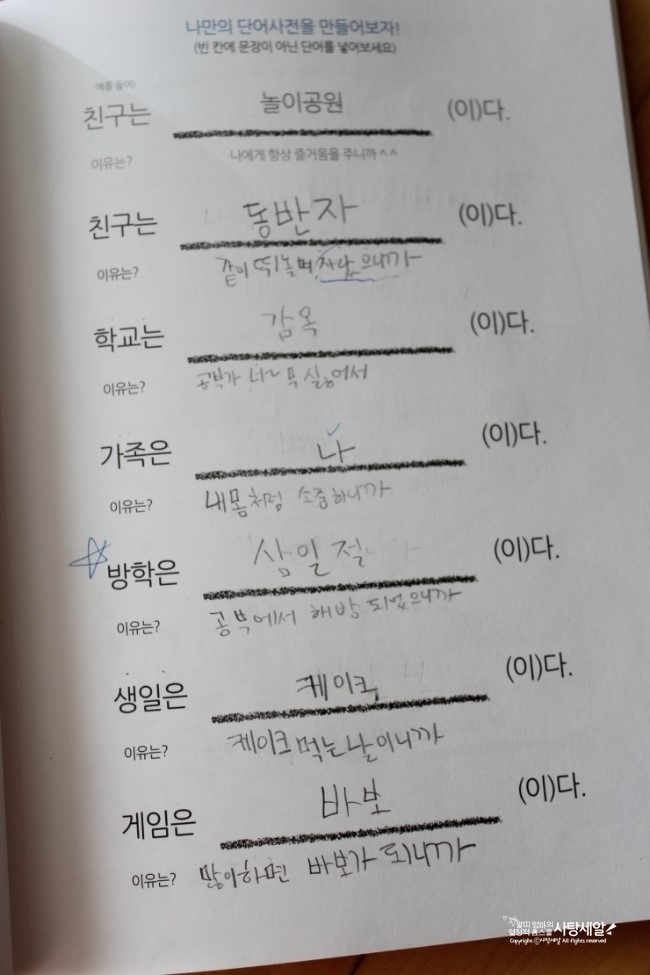 나만의 단어사전을 만들어보자!
(빈 칸에 문장이 아닌 단어를 넣어보세요)
예를 들어)
친구는 놀이공원 (이)다.
이유는? 나에게 항상 즐거움을 주니까 ^^
친구는 동반자 (이)다.
이유는? 같이 뛰놀며 자랐으니까
학교는 감옥 (이)다.
이유는? 공부가 너무 싫어서
가족은 나 (이)다.
이유는? 내 몸처럼 소중하니까
방학은 삼일절 (이)다.
이유는? 공부에서 해방 되었으니까
생일은 케이크 (이)다.
이유는? 케이크 먹는 날이니까
게임은 바보 (이)다.
이유는? 많이하면 바보가 되니까
사탕세알
Copyright ⓒ사탕세알 All rights reserved